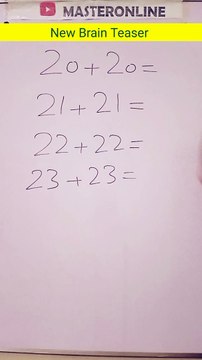 MASTERONLINE
New Brain Teaser
20+20=
21+21=
22+22=
23+23=